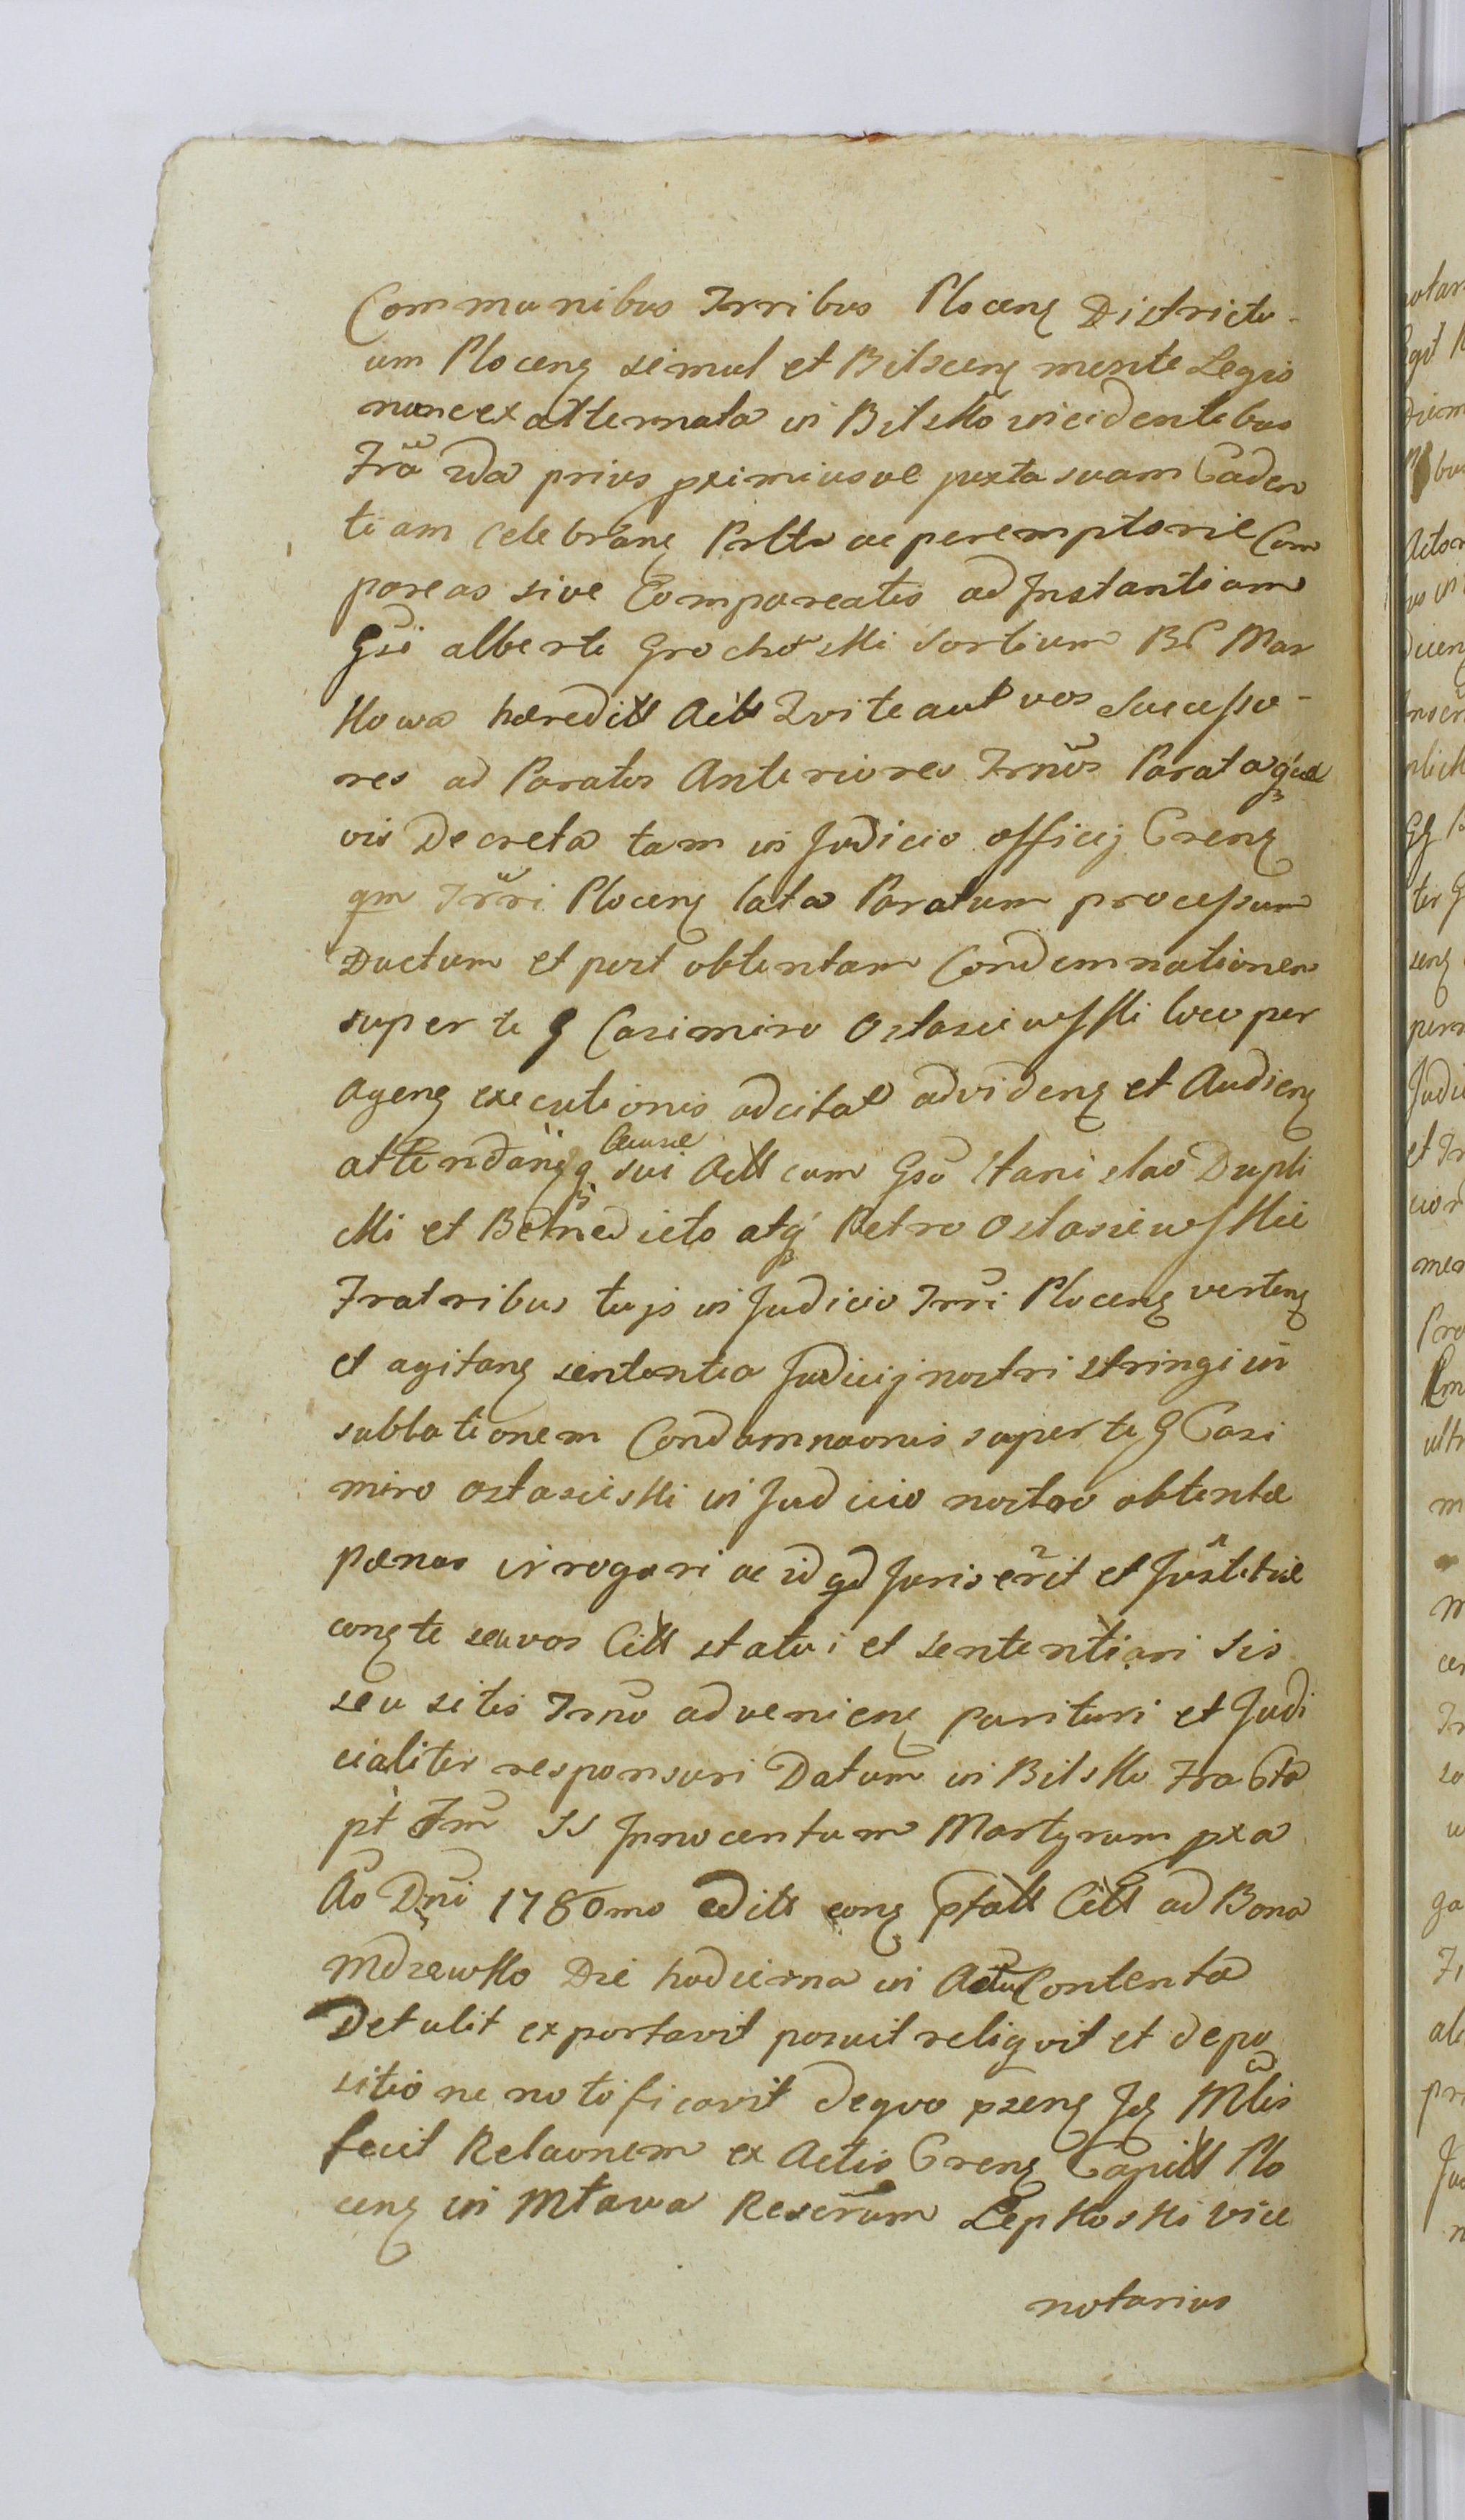 Communibus Trribus Plocenȝ Districtu-
um Plocenȝ simul et Bilscenȝ mente Legis
nunc ex alternata in Bilsko incidentibus
Fra 2da prius proximiusve juxta suam Caden
tiam Celebranȝ Pltr ac peremptorie Com
pareas sive Compareatis ad Instantiam
Gsi Alberti Grochoski Sortium BB Mar
kowa hæredits Acts Tvi te aut vos Successo-
res ad Paratos Anteriores Trnos Parataqve
vis Decreta tam in Judicio officij Crenȝ
qm Trri Plocenȝ lata Paratum processum
Ductum et post obtentam Condemnationem
super te G Casimiro Ostasciewsski loco per
agenȝ executionis adcitat advidenȝ et Audienȝ
attendanqȝ Causæ sui Acts cum Gso Stanislao Dupli
cki et Benedicto atqȝ Petro Ostasiewskie
Fratribus tujs in Judicio Trri Plocenȝ vertenȝ
et agitanȝ sententia Judicij nostri stringi in
sublationem Condamnaonis super te G Casi
miro Ostasieski in Judicio nostro obtentæ
pænas irrogari ac id qd Juris erit et Justitiæ
conȝ te seu vos Citt statui et sententiari Sis
seu sitis Trno advenienȝ parituri et Judi
cialiter responsuri Datum in Bilsko Fra 6ta
pt Fm SS Innocentum Martyrum pxa
Ao Dni 1780mo edits conȝ pfats Citt ad Bona
Mdzewko Die hodierna in Actu Contenta
Detulit exportavit posuit reliqvit et depo
sitione notificavit deqvo pzenȝ Jdȝ Mlis
fecit Relaonem ex Actis Crenȝ Capitt Plo
cenȝ in Mława Rescrum Lepkoski Vice
notarius